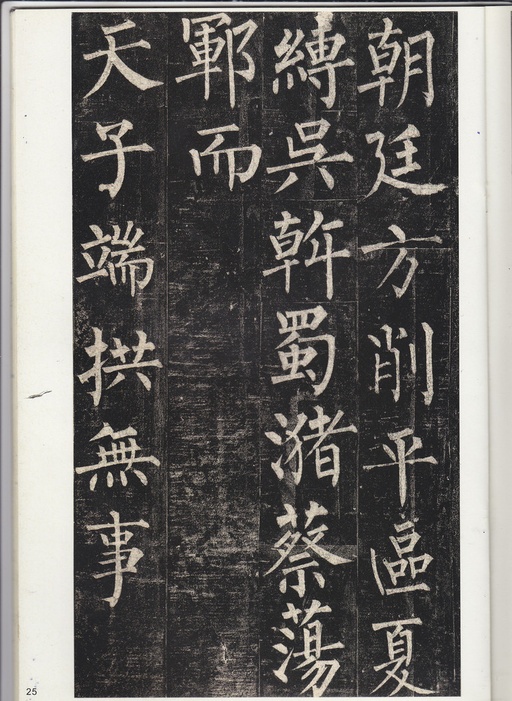 朝廷方削平區夏
縛吳斡蜀潴蔡蕩
鄆而
天子端拱無事
25